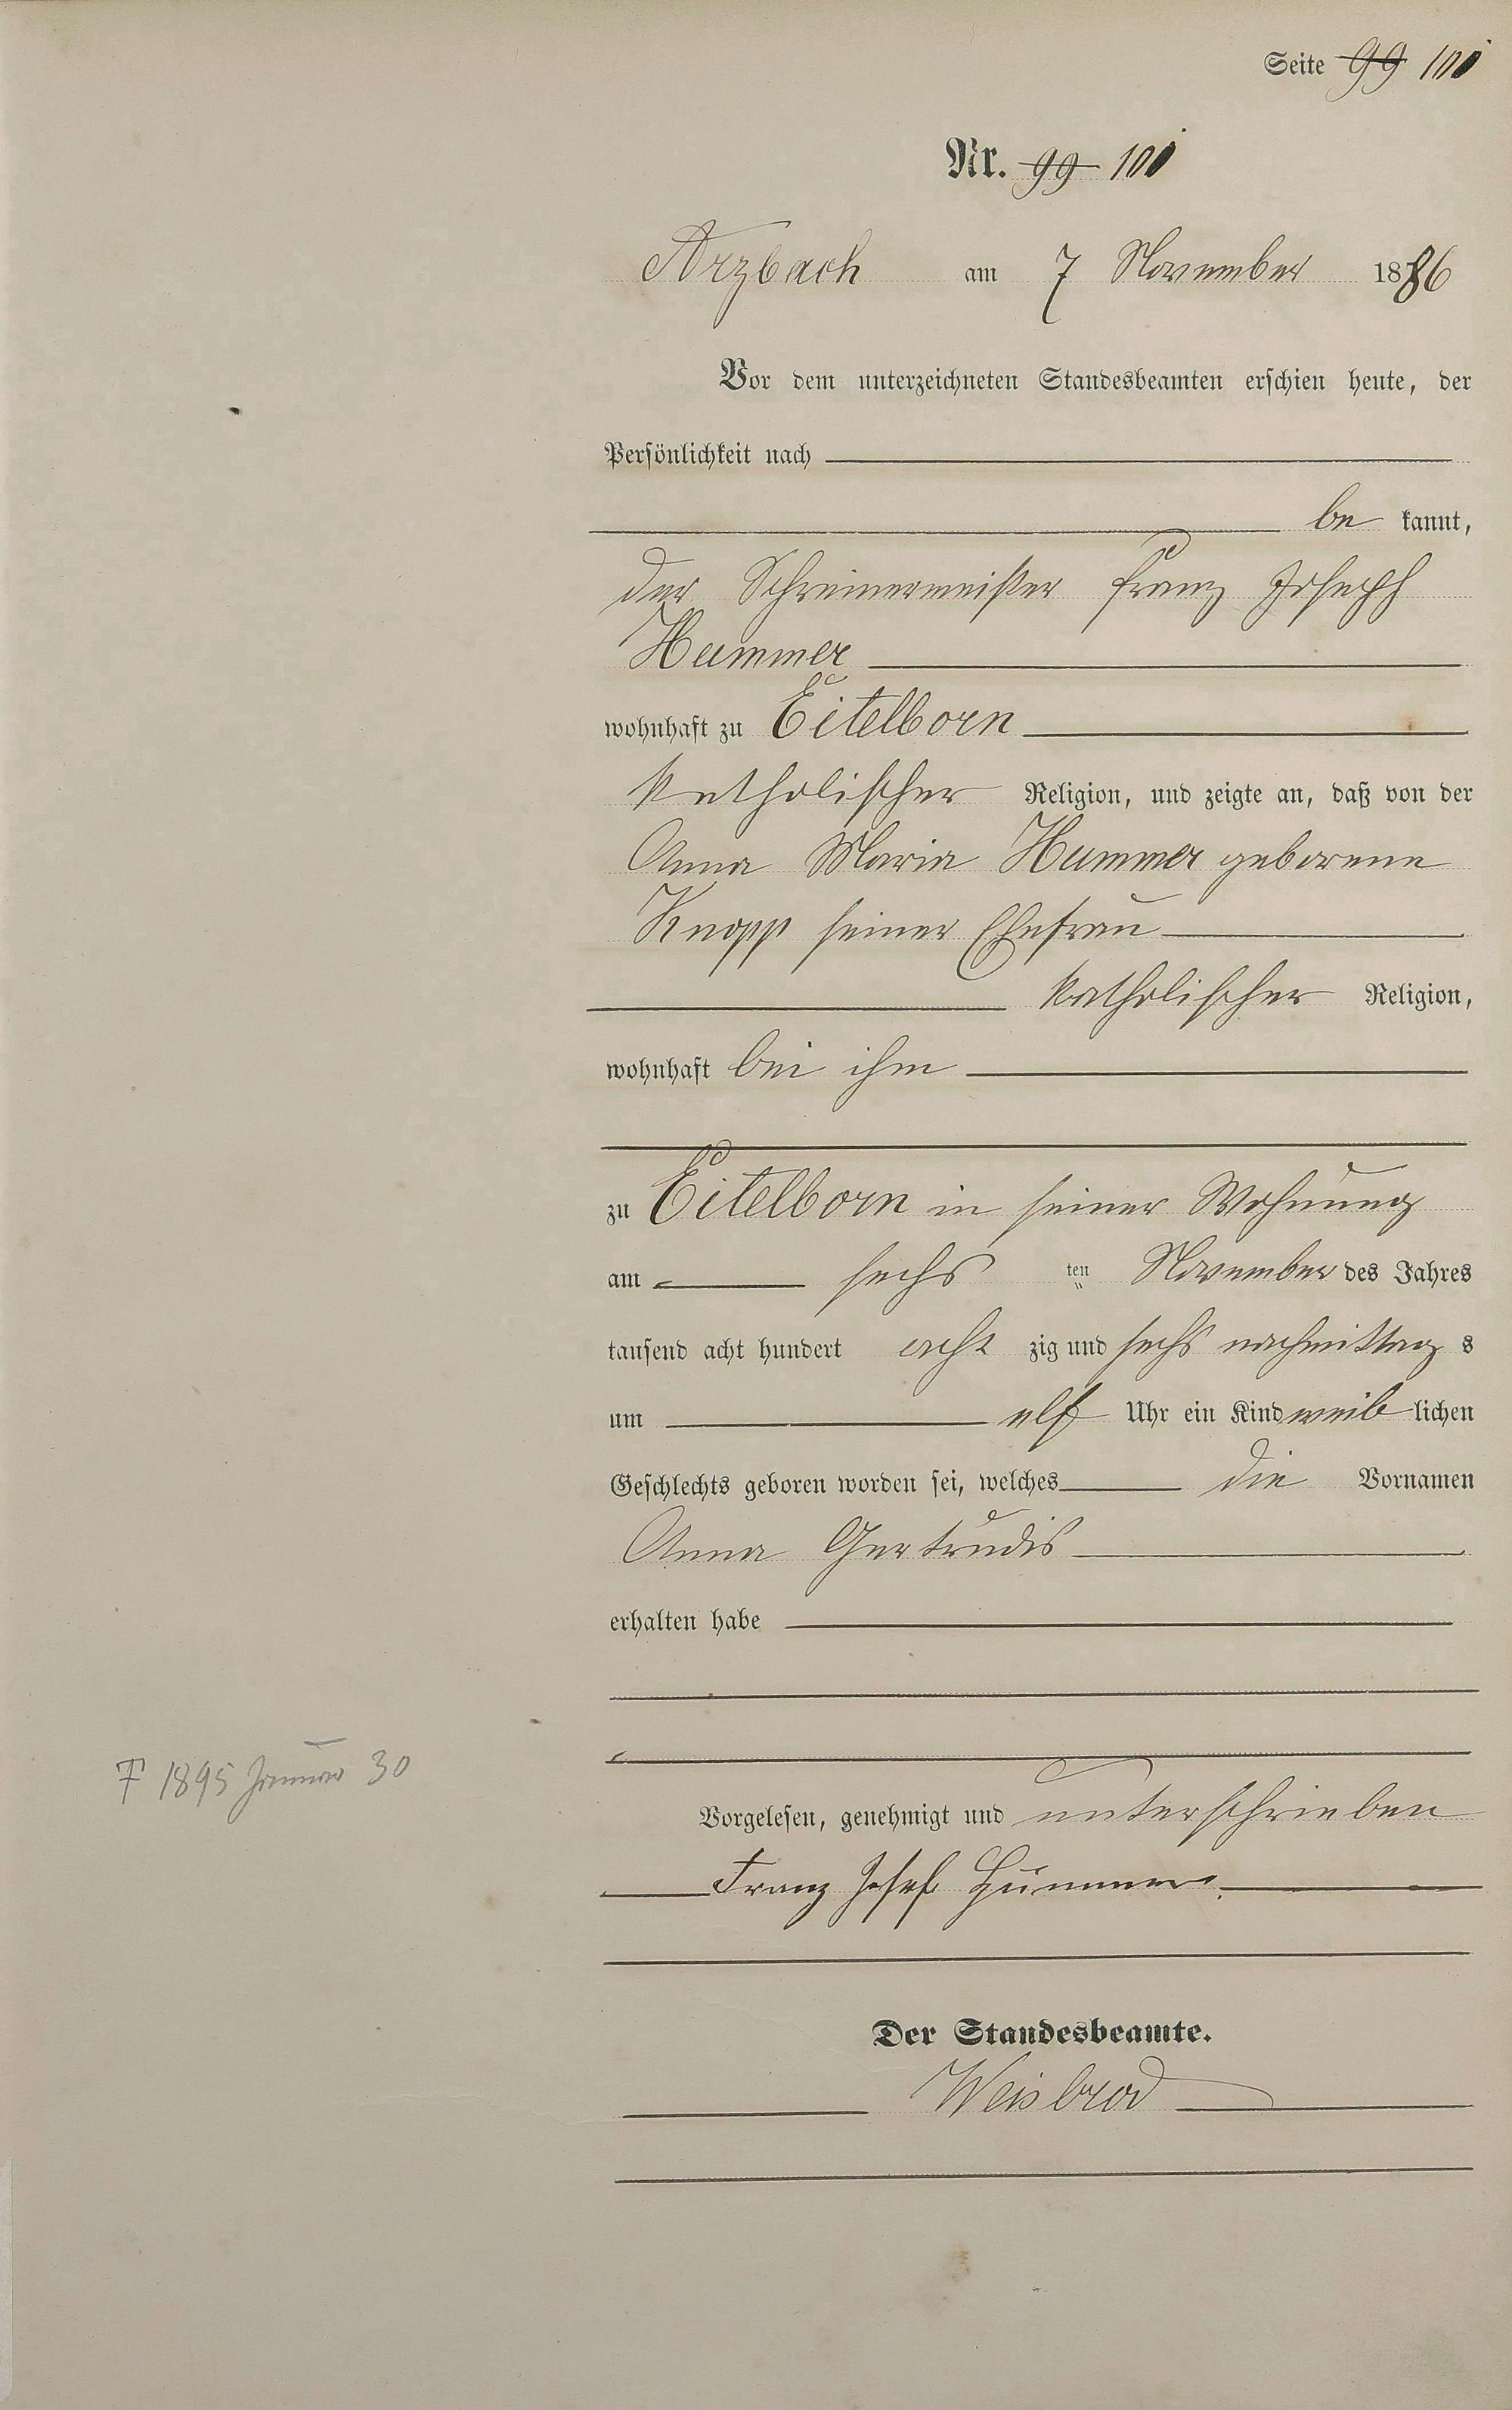 Seite 99 101
Nr. 99 101
Arzbach am 7 November 1886
Vor dem unterzeichneten Standesbeamten erschien heute, der
Persönlichkeit nach
be kannt,
der Schreinermeister Franz Joseph
Hummer
wohnhaft zu Eitelborn
katholischer Religion, und zeigte an, daß von der
Anna Maria Hummer geborene
Knopp seiner Ehefrau
katholischer Religion,
wohnhaft bei ihm
zu Eitelborn in seiner Wohnung
am sechs ten November des Jahres
tausend acht hundert acht zig und sechs nachmittag s
um elf Uhr ein Kind weib lichen
Geschlechts geboren worden sei, welches die Vornamen
Anna Gertrudis
erhalten habe
† 1895 Januar 30
Vorgelesen, genehmigt und unterschrieben
Franz Josef Hummer
Der Standesbeamte.
Weisbrod